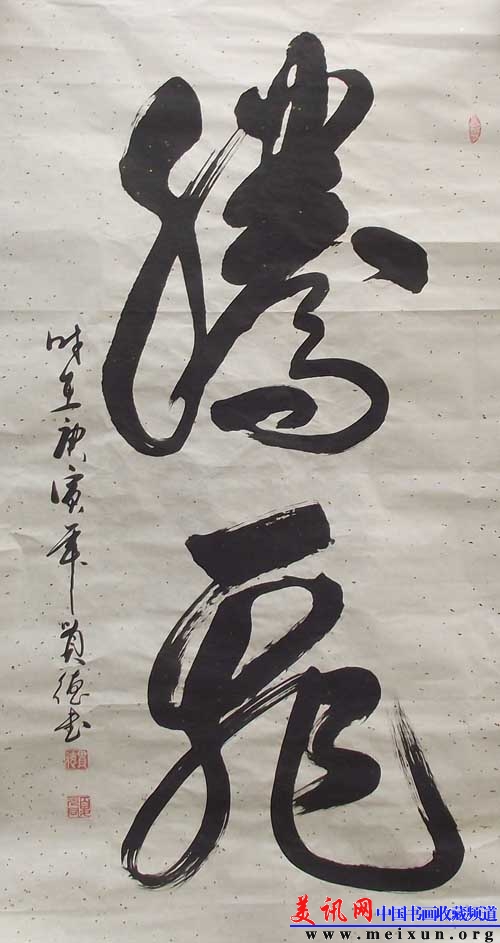 騰飛
时在庚寅年
德书
美讯网中国书画收藏频道
www.meixun.org